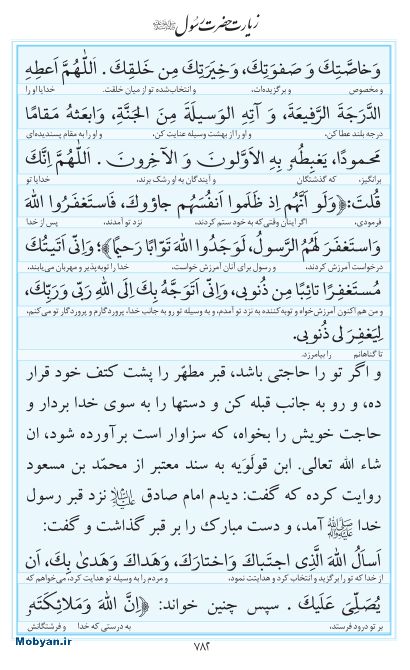 زیارت حضرت رسول ﷺ
وَخاصَّتِكَ وَ صَفوَتِكَ، وَخِيَرَتِكَ مِن خَلقِكَ . اَللّٰهُمَّ اَعطِهِ
و مخصوص و برگزیده‌ات، و انتخاب‌شده تو از میان خلقت. خدایا او را
الدَّرَجَةَ الرَّفيعَةَ، وَ آتِهِ الوَسيلَةَ مِنَ الجَنَّةِ، وَابعَثهُ مَقامًا
درجه بلند عطا کن، و او را از بهشت وسیله عنایت کن، و او را به مقام پسندیده‌ای
مَحمودًا، يَغبِطُهُ بِهِ الاَوَّلونَ وَ الآخِرونَ . اَللّٰهُمَّ اِنَّكَ
برانگیز، که گذشتگان و آیندگان به او رشک برند، خدایا تو
قُلتَ: ﴿وَلَو اَنَّهُم اِذ ظَلَموا اَنفُسَهُم جاؤوكَ، فَاستَغفَرُوا اللهَ
فرمودی، اگر اینان وقتی که به خود ستم کردند، نزد تو آمدند، پس از خدا
وَاستَغفَرَ لَهُمُ الرَّسولُ، لَوَجَدُوا اللهَ تَوّابًا رَحيمًا﴾؛ وَاِنّى اَتَيتُكَ
درخواست آمرزش کردند، و رسول برای آنان آمرزش خواست، خدا را توبه‌پذیر و مهربان می‌یابند،
مُستَغفِرًا تائِبًا مِن ذُنوبى، وَاِنّى اَتَوَجَّهُ بِكَ اِلَى اللهِ رَبّى وَرَبِّكَ،
و من هم اکنون آمرزش‌خواه و توبه‌کننده به نزد تو آمدم، و به وسیله تو رو به جانب خدا، پروردگارم و پروردگار تو می‌کنم،
لِيَغفِرَ لى ذُنوبى.
تا گناهانم را بیامرزد.
و اگر تو را حاجتی باشد، قبر مطهّر را پشت کتف خود قرار
ده، و رو به جانب قبله کن و دستها را به سوی خدا بردار و
حاجت خویش را بخواه، که سزاوار است برآورده شود، ان
شاء الله تعالی. ابن قولَوَیه به سند معتبر از محمّد بن مسعود
روایت کرده که گفت: دیدم امام صادق علیه‌السلام نزد قبر رسول
خدا ﷺ آمد، و دست مبارک را بر قبر گذاشت و گفت:
اَسأَلُ اللهَ الَّذِى اجتَباكَ وَاختارَكَ، وَهَداكَ وَهَدىٰ بِكَ، اَن
از خدا که تو را برگزید و انتخاب کرد و هدایتت نمود، و مردم را به وسیله تو هدایت کرد، می‌خواهم که
يُصَلِّىَ عَلَيكَ . سپس چنین خواند: ﴿اِنَّ اللهَ وَمَلائِكَتَهُ
بر تو درود فرستد، به درستی که خدا و فرشتگانش
۷۸۲
Mobyan.ir